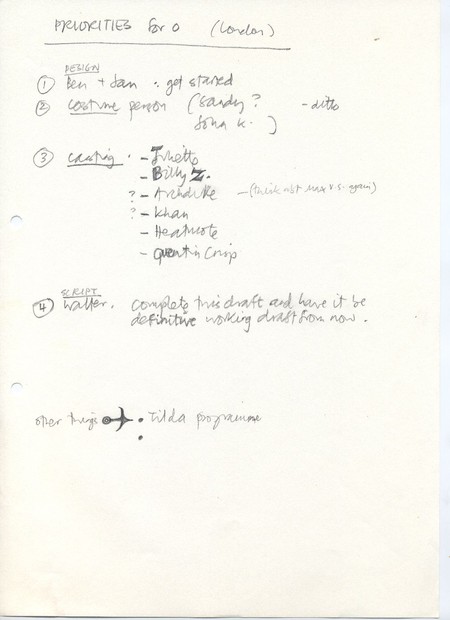 PRIORITIES for O (London)
DESIGN
① Ben + Jan : get started
② Costume person (Sandy? - ditto
John K. )
③ Casting . - Juliette
- Billy Z.
? - Archduke - (think abt Max V.S. again)
? - Khan
- Heathcote
- Quentin Crisp
SCRIPT
④ Walter. Complete this draft and have it be
definitive working draft from now.
other things • Tilda programme
•